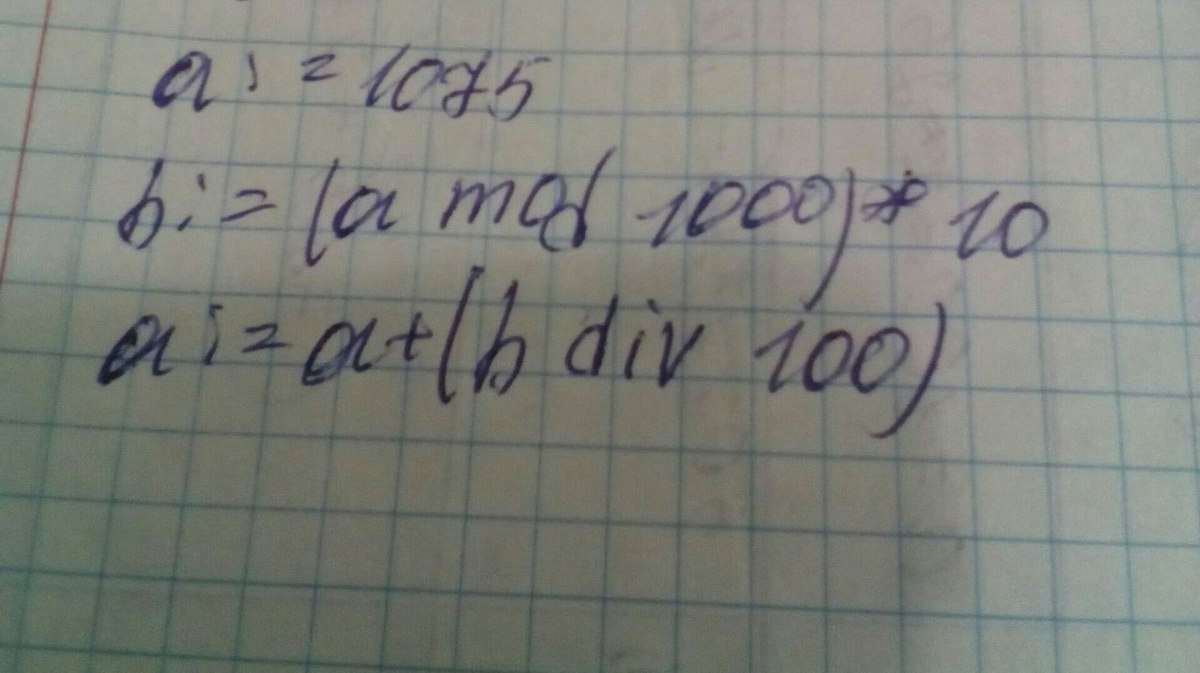 a := 1075
b := (a mod 1000) * 10
a := a + (b div 100)